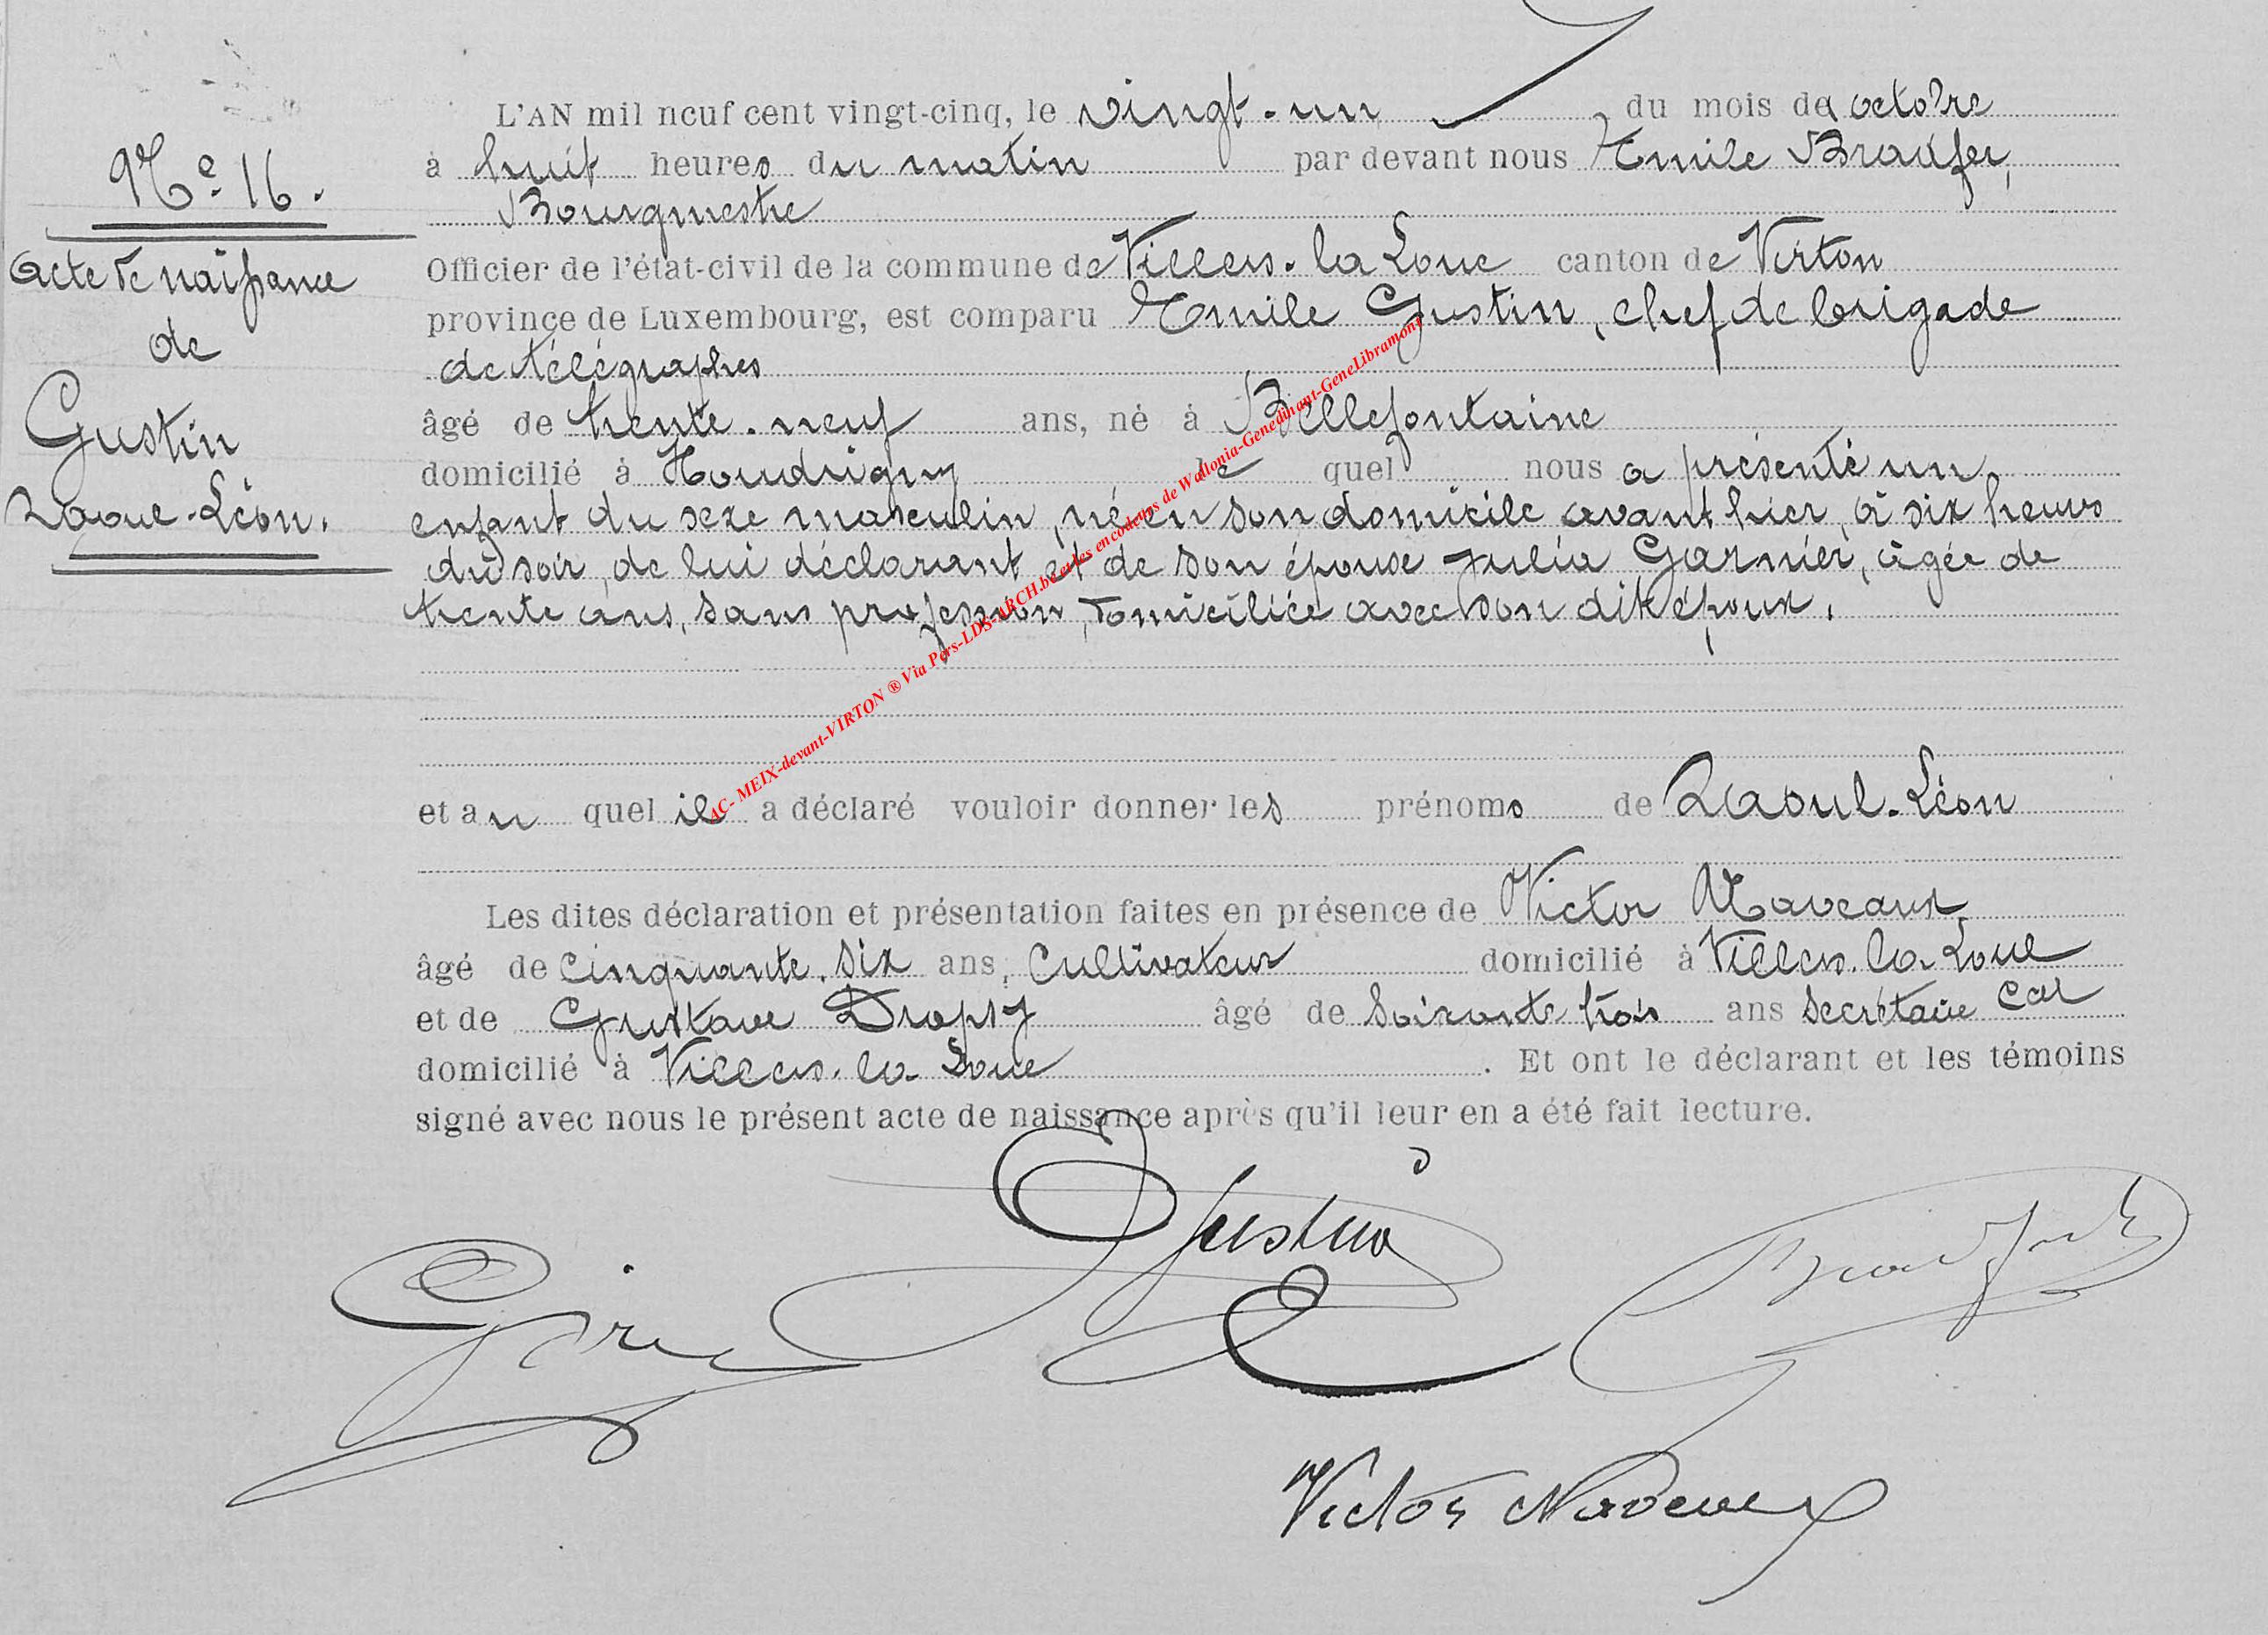 N° 16.
Acte de naissance
de
Gustin
Raoul-Léon.
L'AN mil neuf cent vingt-cinq, le vingt-un du mois d'octobre
à huit heures du matin par devant nous Emile Braufer,
Bourgmestre
Officier de l'état-civil de la commune de Villers-la Loue canton de Virton
province de Luxembourg, est comparu Emile Gustin, chef de brigade
de télégraphes
âgé de trente-neuf ans, né à Bellefontaine
domicilié à Houdrigny le quel nous a présenté un
enfant du sexe masculin, né en son domicile avant hier, à six heures
du soir, de lui déclarant et de son épouse Julia Garnier, âgée de
trente ans, sans profession, domiciliée avec son dit époux.
et au quel il a déclaré vouloir donner les prénoms de Raoul-Léon
Les dites déclaration et présentation faites en présence de Victor Naveaux,
âgé de cinquante-six ans, cultivateur domicilié à Villers-la-Loue
et de Gustave Dropsy âgé de soixante trois ans secrétaire cal
domicilié à Villers-la-Loue. Et ont le déclarant et les témoins
signé avec nous le présent acte de naissance après qu'il leur en a été fait lecture.
Gustin
Victor Naveaux
AC- MEIX-devant-VIRTON ® Via Pers-LDS-ARCH.be et les encodeurs de Wallonia-Genedinant-GeneLibramont